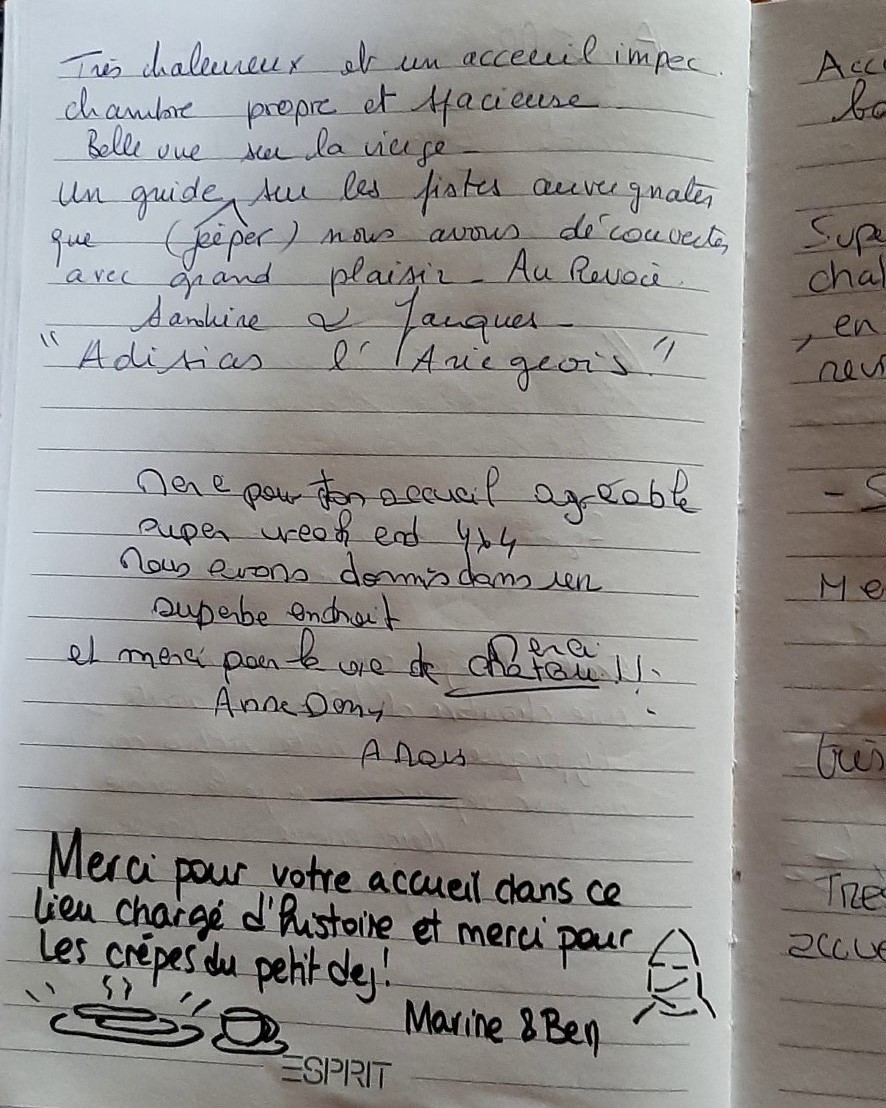 Très chaleureux et un acceuil impec.
chambre propre et spacieuse
Belle vue sur la vierge
Un guide sur les pistes auvergnates
que (jeeper) nous avons découvertes
avec grand plaisir - Au Revoir.
Sandrine & Jacques -
" l'Ariegeois "
Merci pour ton accueil agréable
super week end 4x4
Nous avons dormis dans un
superbe endroit
et merci pour la vie de chateau !!!
Merci
Anne
Merci pour votre accueil dans ce
lieu chargé d'histoire et merci pour
les crêpes du petit dej!
Marine & Ben
ESPRIT
Acc
Supe
chal
, en
- S
Me
très
Tre
accue